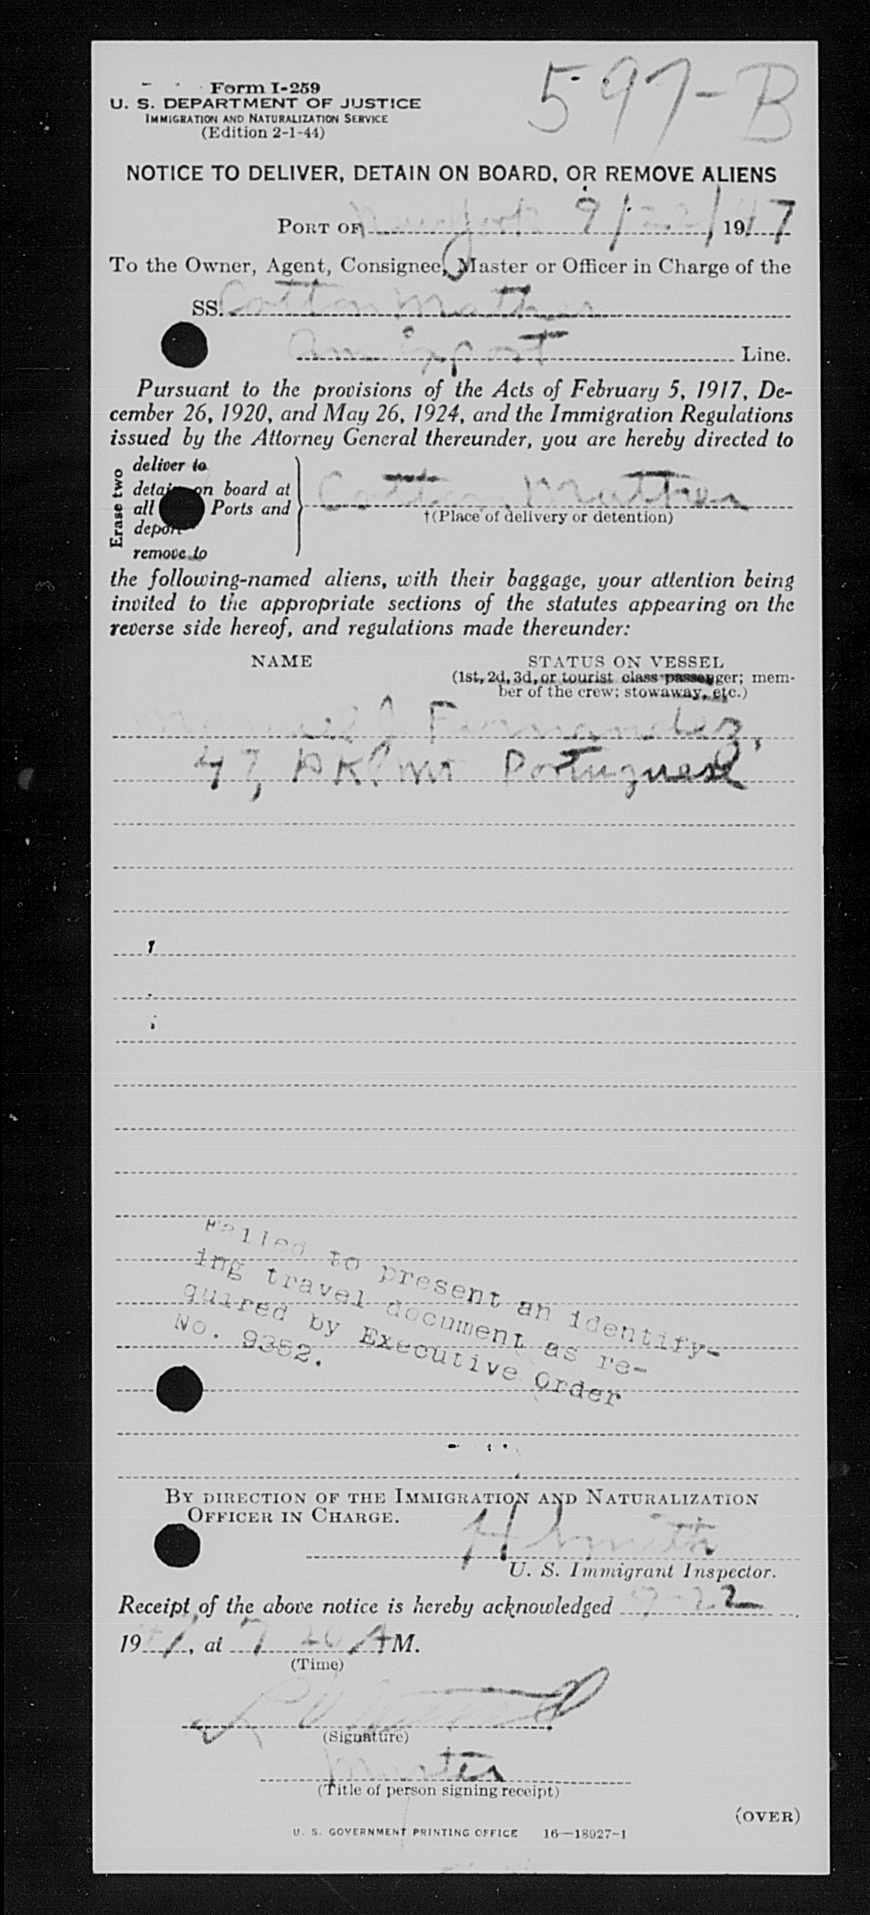 597-B
Form I-259
U. S. DEPARTMENT OF JUSTICE
IMMIGRATION AND NATURALIZATION SERVICE
(Edition 2-1-44)
NOTICE TO DELIVER, DETAIN ON BOARD, OR REMOVE ALIENS
PORT OF New York 9/22/1947
To the Owner, Agent, Consignee, Master or Officer in Charge of the
SS. Cotton Mather
Am Export Line.
Pursuant to the provisions of the Acts of February 5, 1917, De-
cember 26, 1920, and May 26, 1924, and the Immigration Regulations
issued by the Attorney General thereunder, you are hereby directed to
Erase two
deliver to
detain on board at
all Ports and
deport
remove to
Cotton Mather
†(Place of delivery or detention)
the following-named aliens, with their baggage, your attention being
invited to the appropriate sections of the statutes appearing on the
reverse side hereof, and regulations made thereunder:
NAME STATUS ON VESSEL
(1st, 2d, 3d, or tourist class passenger; mem-
ber of the crew; stowaway, etc.)
Manuel J. Fernandez,
47, Portuguese
Failed to present an identify-
ing travel document as re-
quired by Executive Order
No. 9352.
BY DIRECTION OF THE IMMIGRATION AND NATURALIZATION
OFFICER IN CHARGE.
H Smith
U. S. Immigrant Inspector.
Receipt of the above notice is hereby acknowledged 9-22
1947, at 7 AM.
(Time)
(Signature)
Master
(Title of person signing receipt)
(OVER)
U. S. GOVERNMENT PRINTING OFFICE 16—18027-1